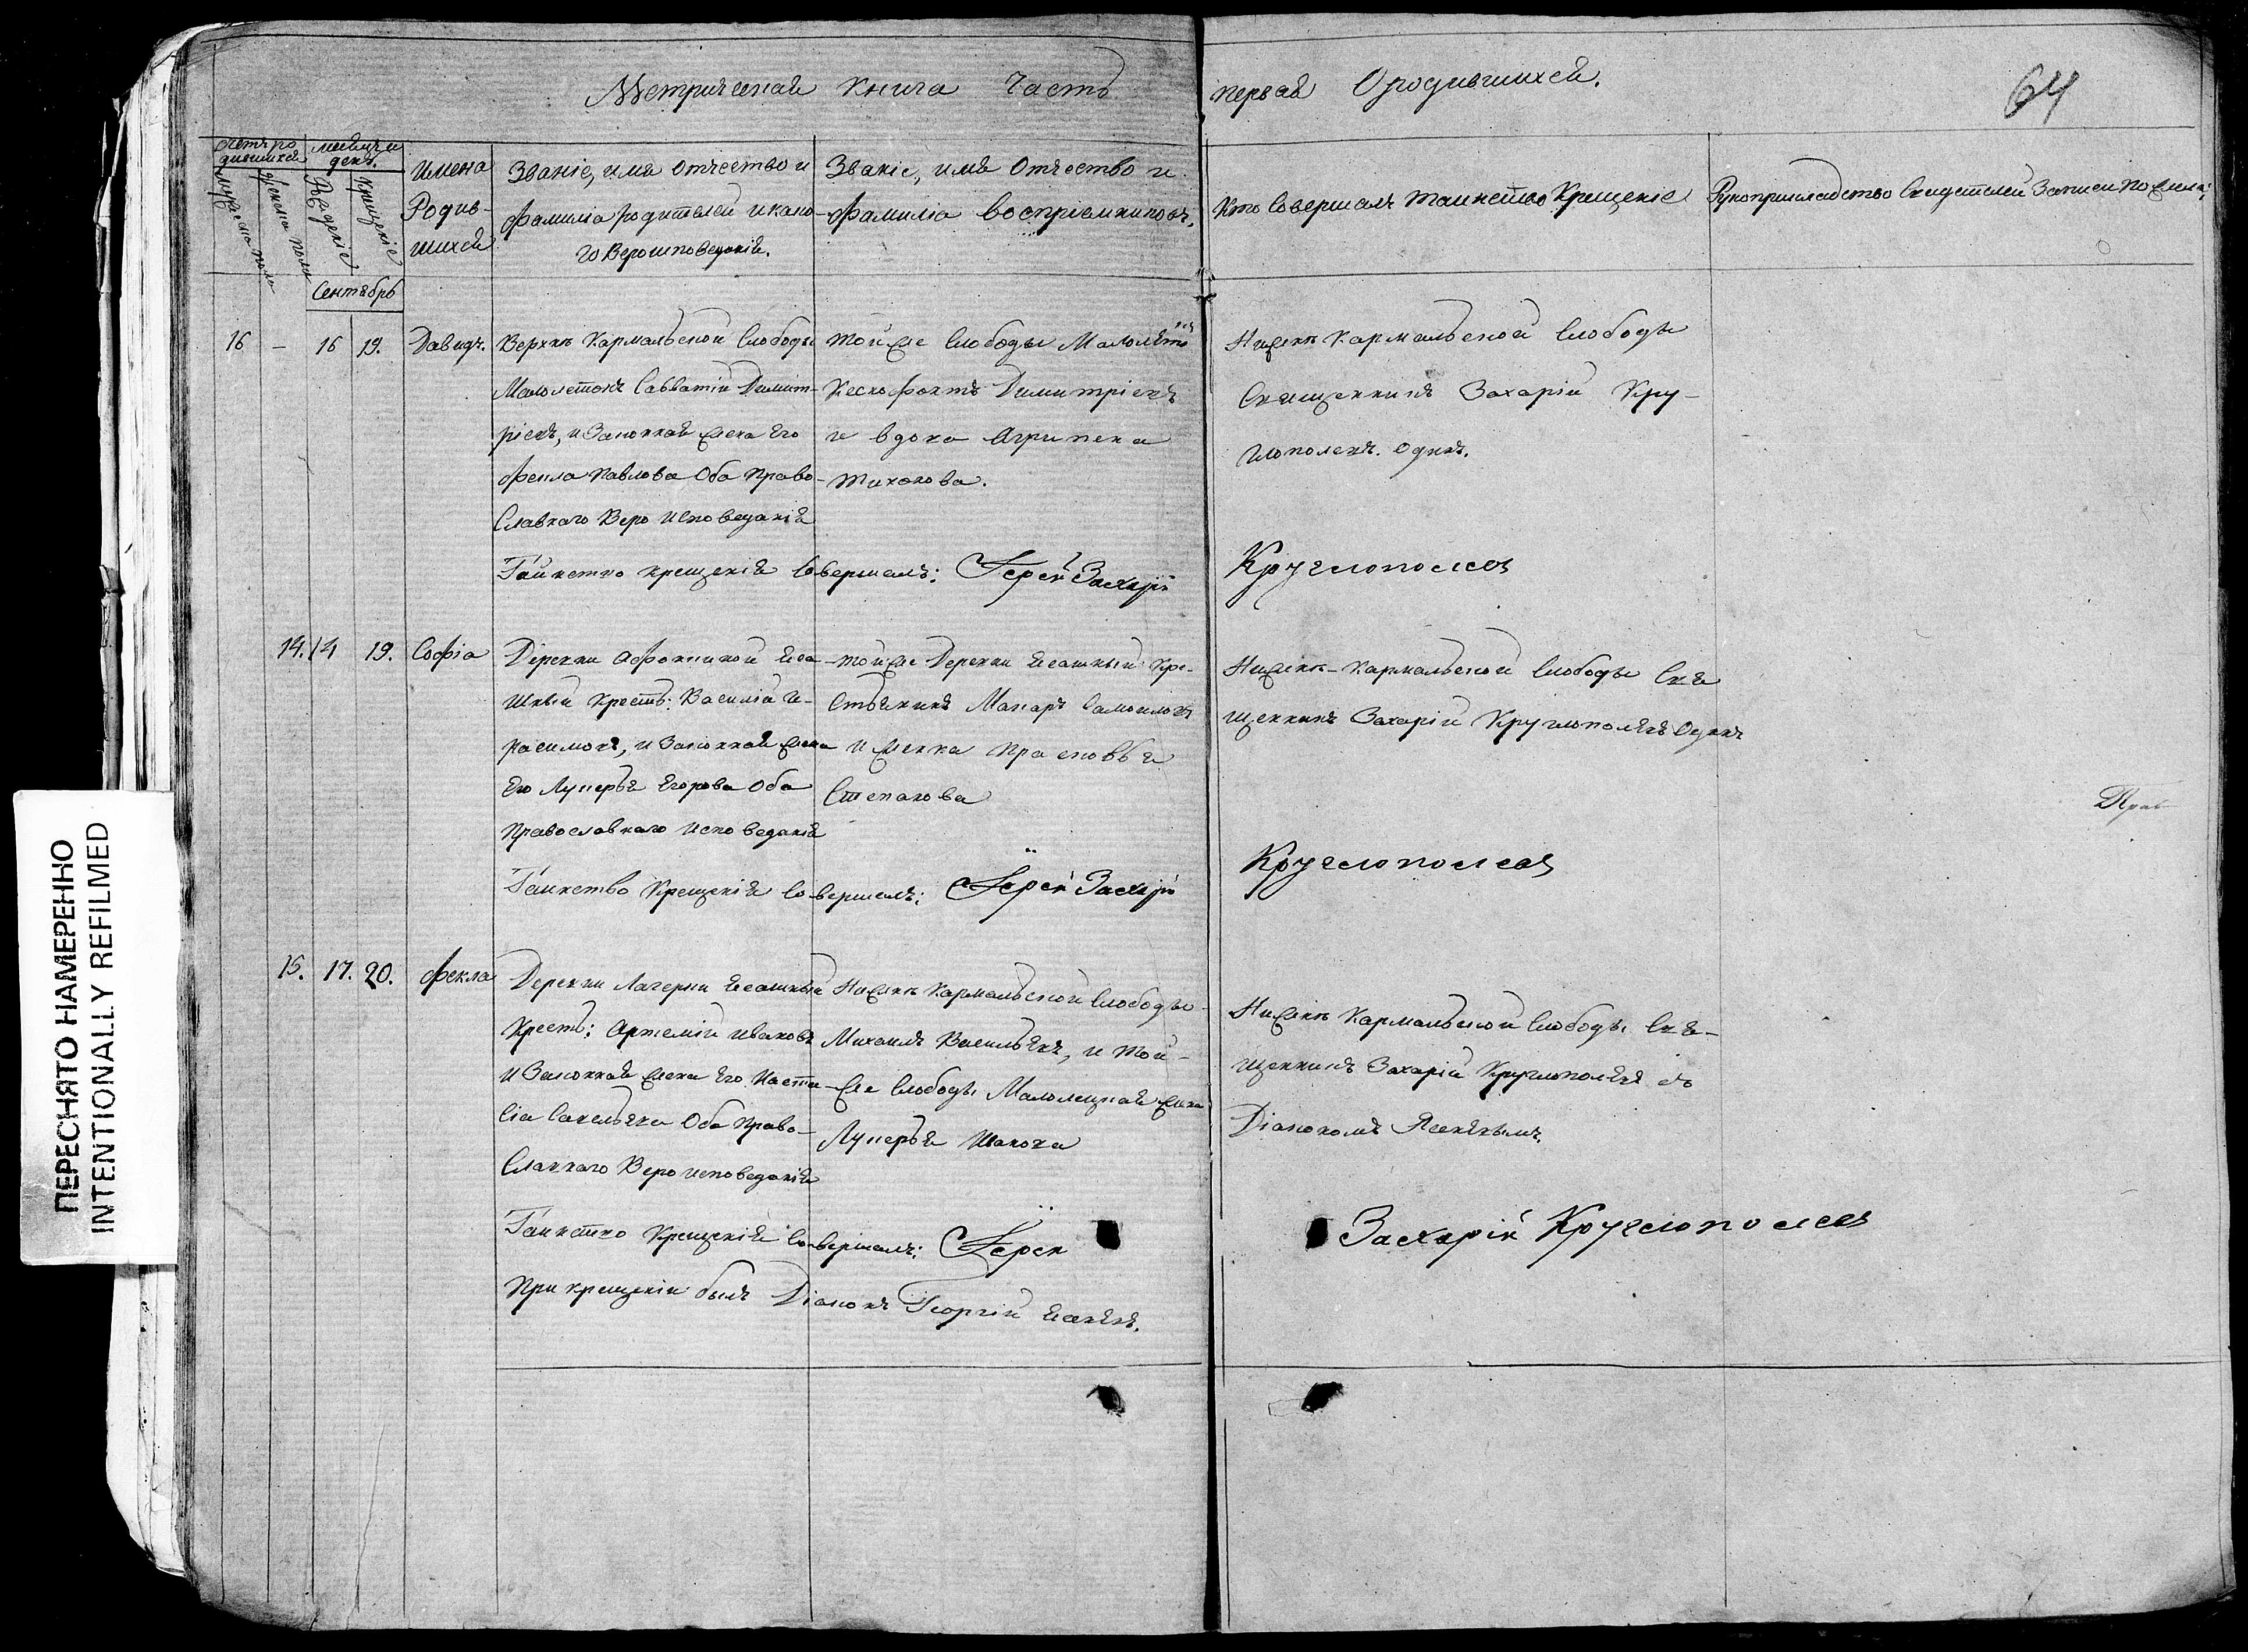 Метрическая книга часть первая О родившихся.
64
счетъ родившихся
мужеска пола
женска пола
месяцъ и день.
Рождение
Крещение
Имена Родившихся
Званіе, имя отчество и
фамиліа родителей и како-
го Вероисповеданія.
Званіе, имя Отчество и
фамиліа воспріемниковъ,
Кто Совершалъ таинство Крещеніе
Рукоприкладство Свидетелей Записи По Жела:
Сентябрь
16 – 16 19. Давидъ.
Верхнѣ Кармальской Слободы
Малолетокъ Савватій Димит-
ріевъ, и Законная жена Его
Фекла Павлова Оба Право-
Славнаго Веро исповеданія
той же Слободы Малолетокъ
Ксенофонтъ Димитріевъ
и вдова Агрипена
Тихонова.
Нижне Кармальской Слободы
Священникъ Захарій Кру-
глополевъ. Одинъ.
Таинство крещенія совершалъ: Іерей Захарій Круглополевъ
14. 14 19. Софіа
Деревни Афонкиной Яса-
шный Крестъ: Василій Ге-
расимовъ, и Законная жена
Его Лукерья Егорова Оба
Православнаго исповеданія
той же Деревни Ясашный Кре-
стьянинъ Макаръ Самойловъ
и женка Прасковья
Степанова
Нижне-Кармальской Слободы Свя
щенникъ Захарій Круглополевъ Одинъ
Прав
Таинство Крещенія совершалъ: Іерей Захарій Круглополевъ
15. 17. 20. Фекла
Деревни Лагерки Ясашный
Крест: Артемій Ивановъ
и Законная жена Его Наста-
сіа Савельева Оба Право-
Славнаго Веро исповеданія
Нижне Кармальской Слободы
Михаилъ Васильевъ, и той-
же Слободы Малолецкая жена
Лукерья Иванова
Нижне Кармальской Слободы Свя-
щенникъ Захарій Круглополевъ съ
Діакономъ Ясеневымъ.
Таинство Крещенія совершалъ: Іерей Захарій Круглополевъ
При крещеніи былъ Діаконъ Георгій Ясеневъ.
ПЕРЕСНЯТО НАМЕРЕННО
INTENTIONALLY REFILMED